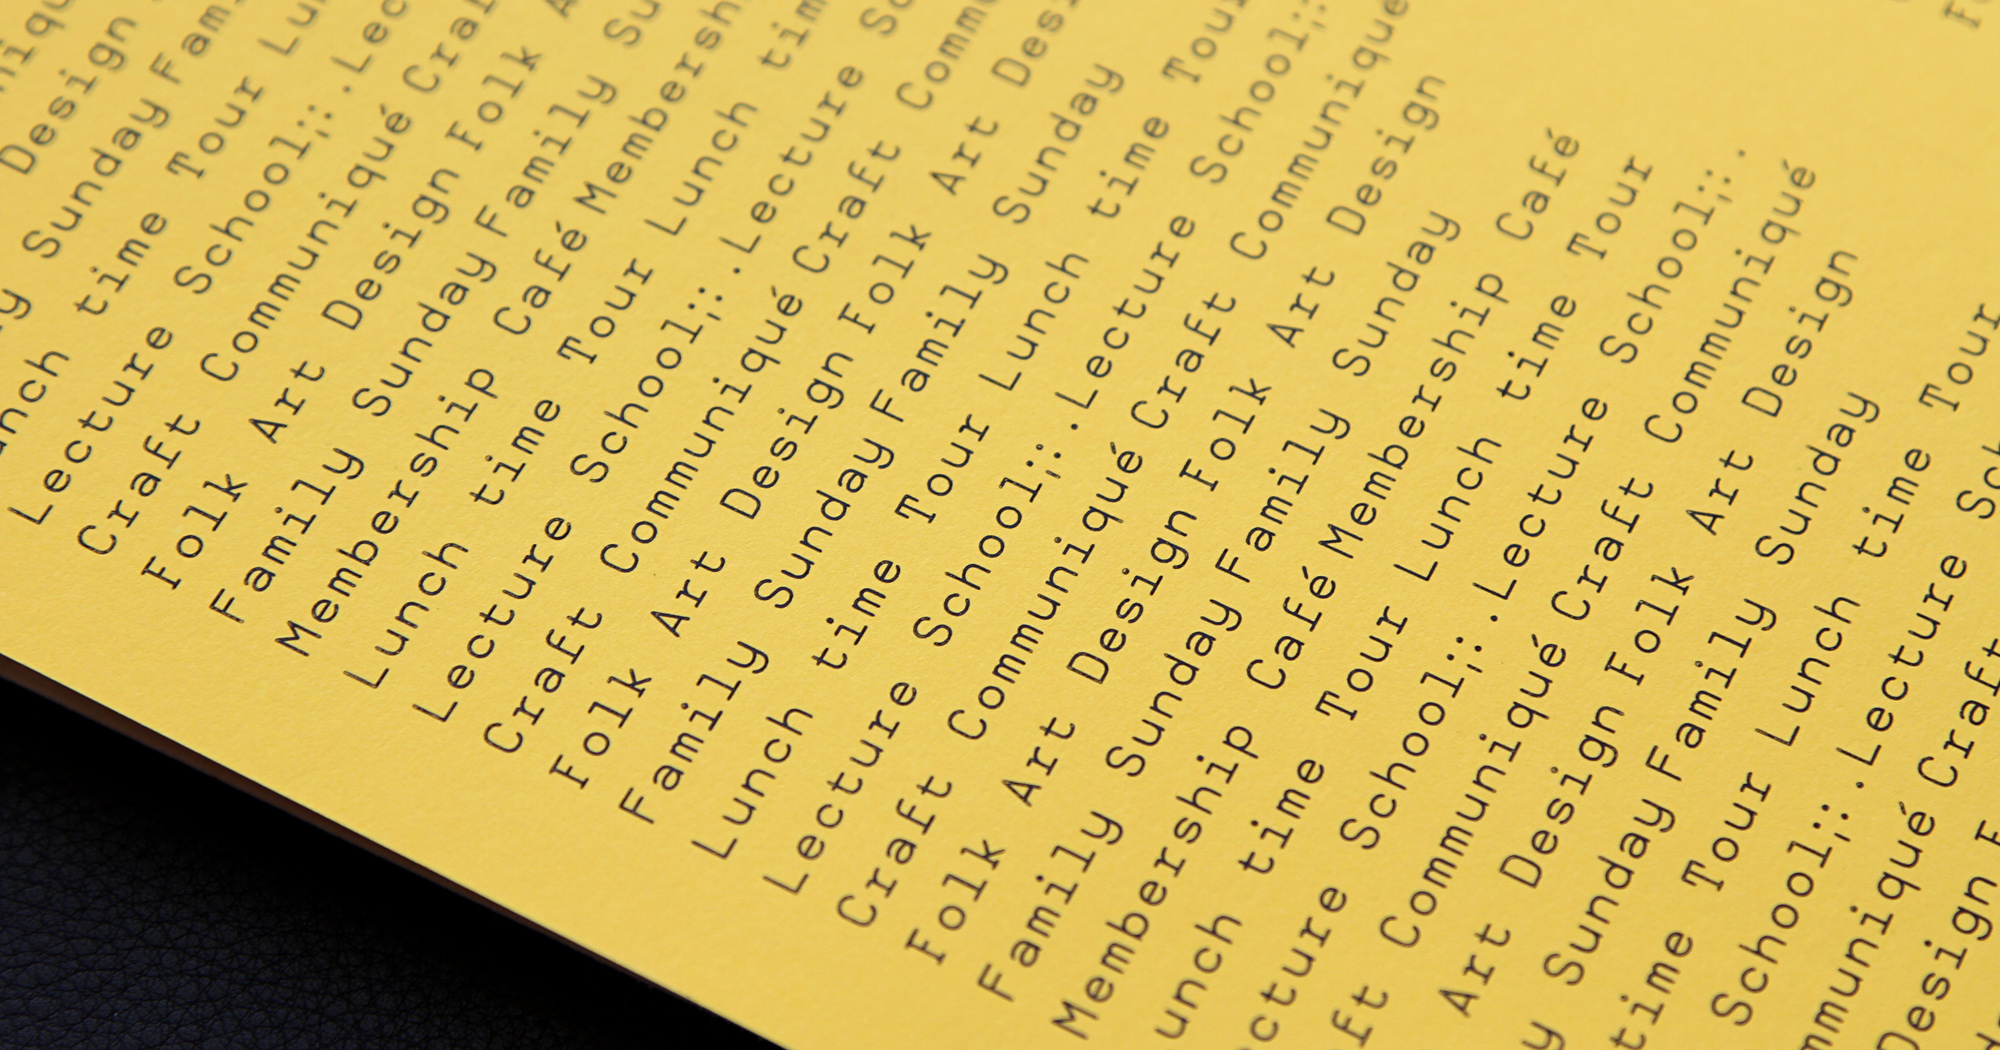 niqu
Design
y Sunday Fami
unch time Tour Lun
Lecture School;:.Lec
Craft Communiqué Craf
Folk Art Design Folk A
Family Sunday Family Su
Membership Café Membershi
Lunch time Tour Lunch tim
Lecture School;:.Lecture Sc
Craft Communiqué Craft Comm
Folk Art Design Folk Art Desi
Family Sunday Family Sunday
Lunch time Tour Lunch time Tour
Lecture School;:.Lecture School;:
Craft Communiqué Craft Communiqué
Folk Art Design Folk Art Design
Family Sunday Family Sunday
Membership Café Membership Café
unch time Tour Lunch time Tour
cture School;:.Lecture School;:.
ft Communiqué Craft Communiqué
Art Design Folk Art Design
y Sunday Family Sunday
time Tour Lunch time Tour
School;:.Lecture Sch
mmuniqué Craft
Design F